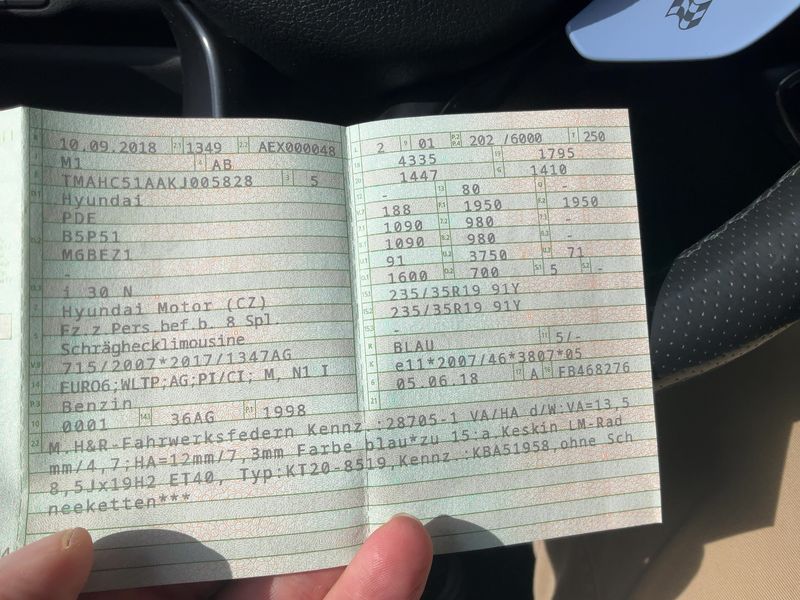 10.09.2018 2.1 1349 2.2 AEX000048
M1 4 AB
TMAHC51AAKJ005828 3 5
Hyundai
PDE
B5P51
M6BEZ1
-
i 30 N
Hyundai Motor (CZ)
Fz.z.Pers.bef.b. 8 Spl
Schräghecklimousine
715/2007*2017/1347AG
EURO6;WLTP;AG;PI/CI; M, N1 I
Benzin
0001 14.1 36AG P.1 1998
L 2 9 01 P.2 P.4 202 /6000 T 250
4335 1795
1447 G 1410
- 13 80 Q -
188 1950 1950
1090 980 -
1090 980 -
91 3750 71
1600 700 S.1 5 S.2 -
235/35R19 91Y
235/35R19 91Y
-
BLAU 11 5/-
e11*2007/46*3807*05
05.06.18 17 A 16 FB468276
21
22 M.H&R-Fahrwerksfedern Kennz.:28705-1 VA/HA d/W:VA=13,5
mm/4,7;HA=12mm/7,3mm Farbe blau*zu 15:a.Keskin LM-Rad
8,5Jx19H2 ET40, Typ:KT20-8519,Kennz.:KBA51958,ohne Sch
neeketten***